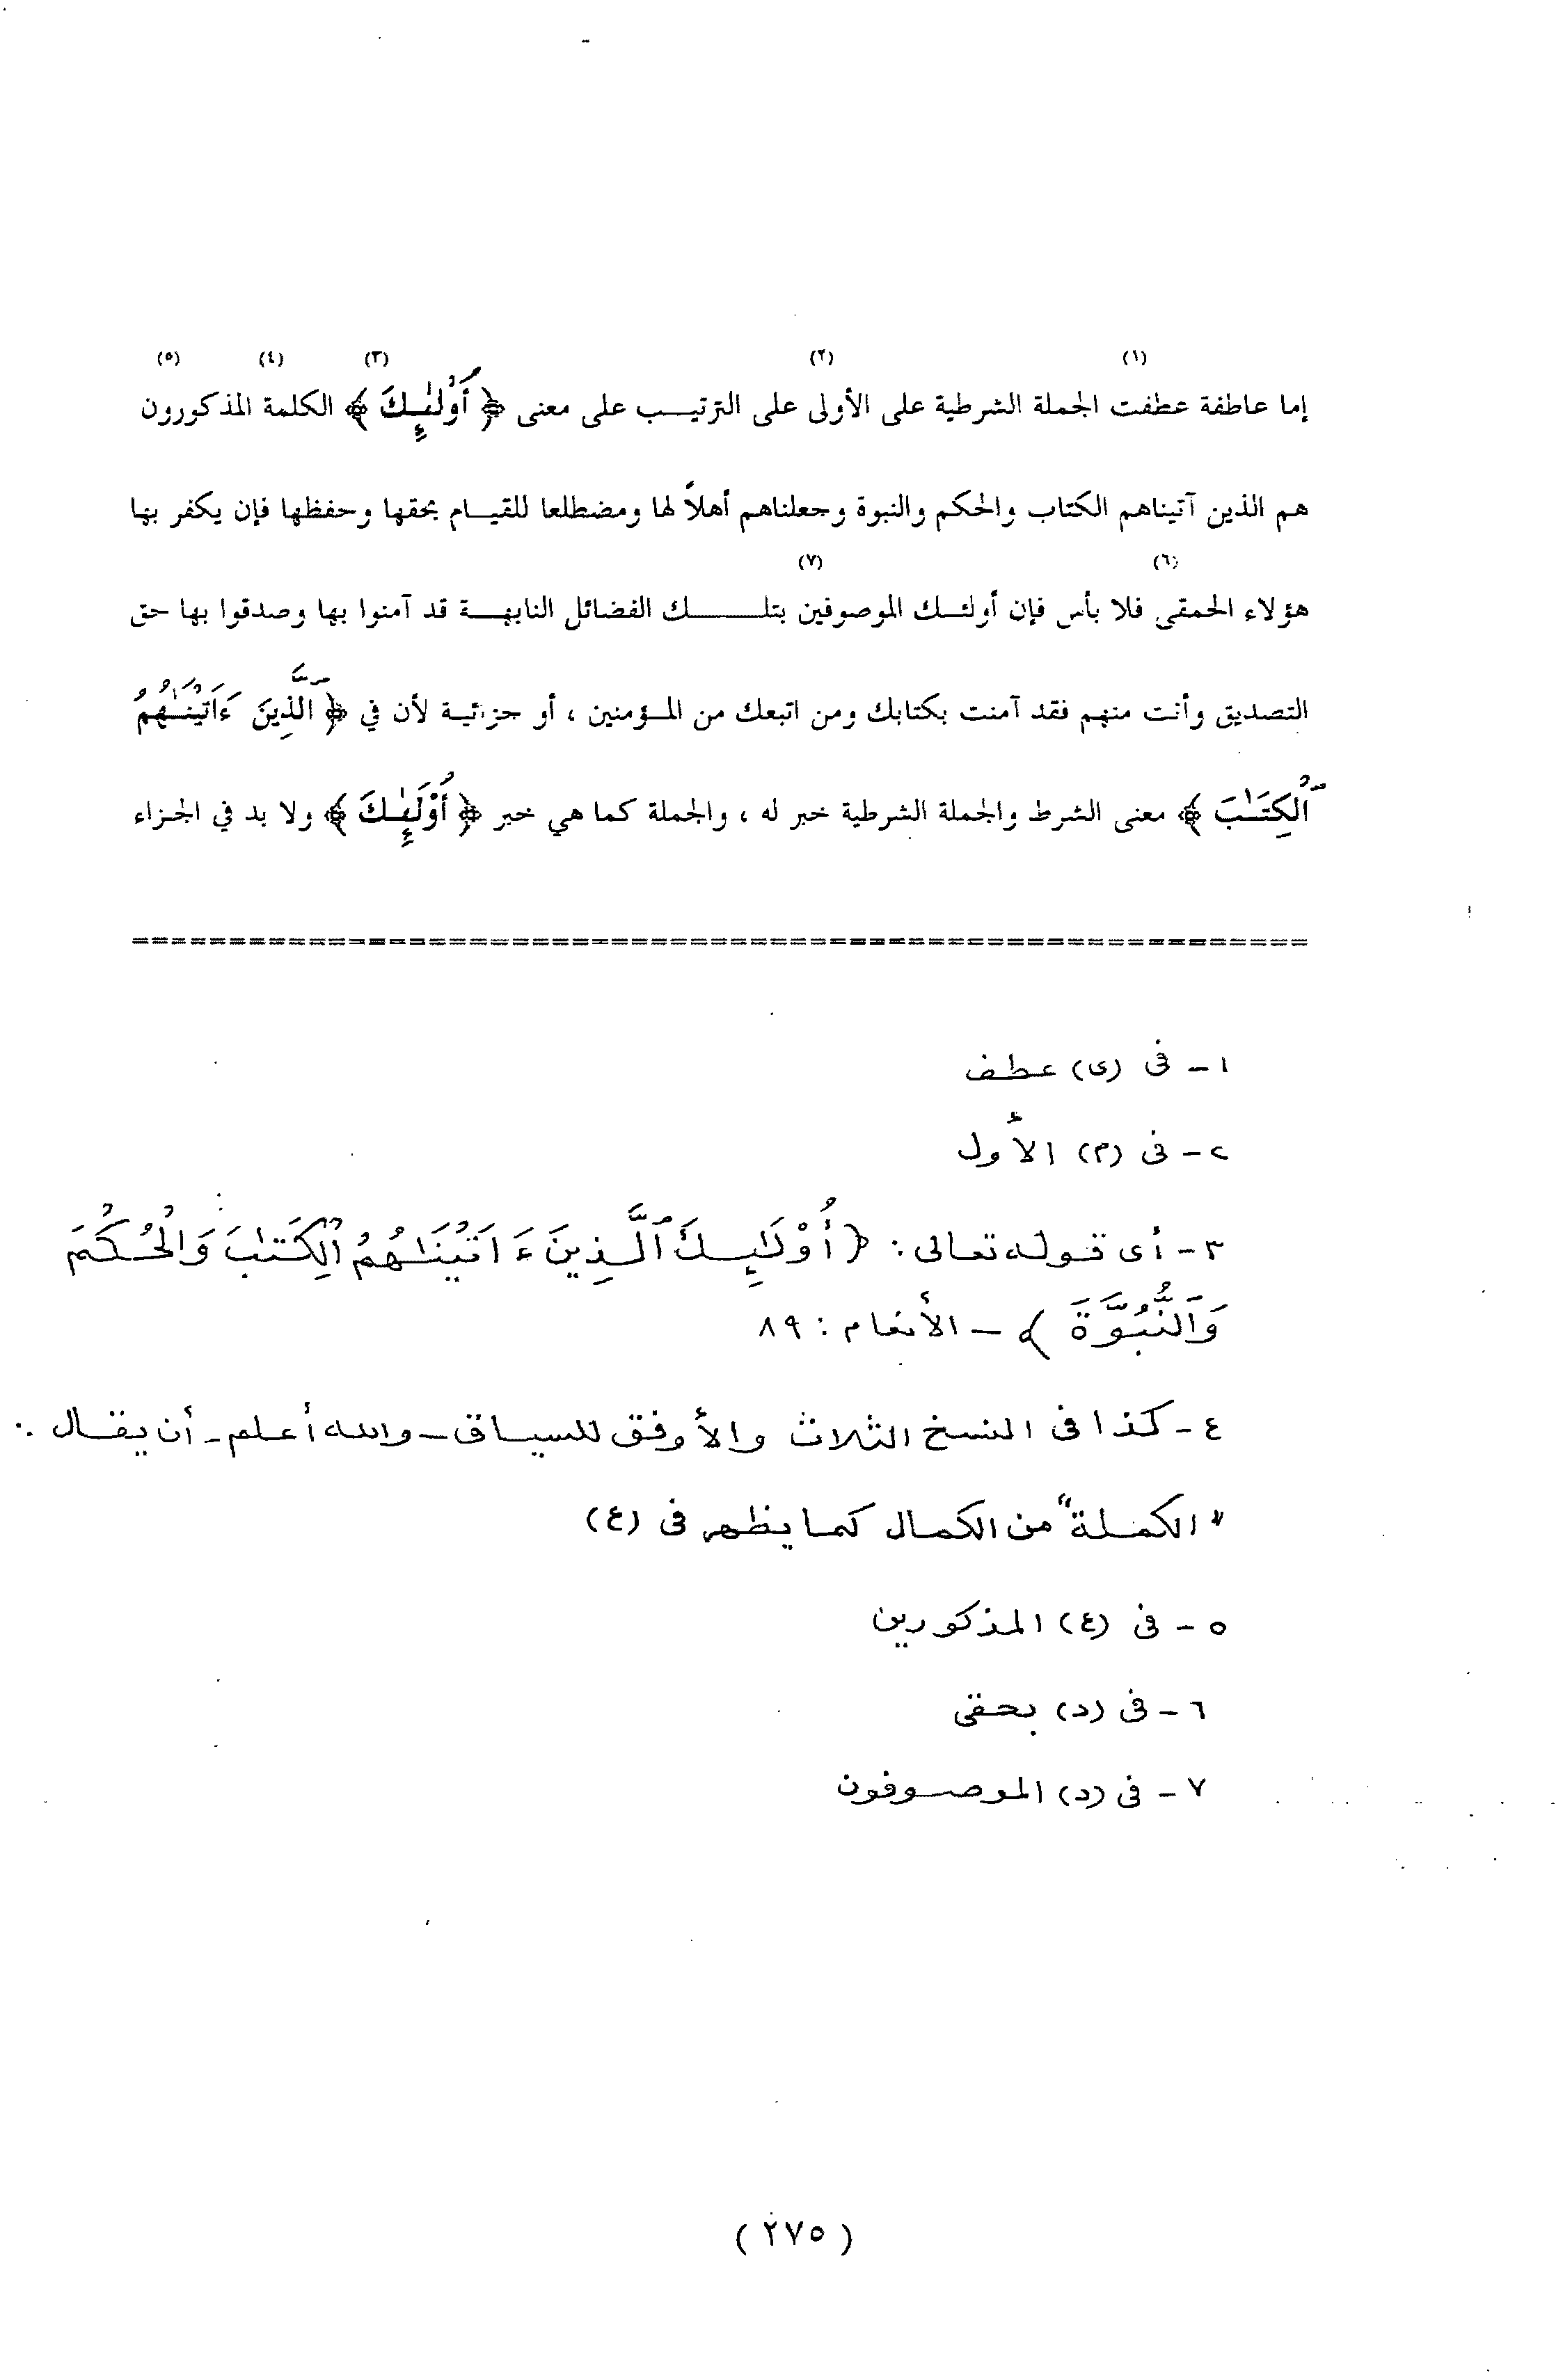 (١) (٢) (٣) (٤) (٥)
إما عاطفة عطفت الجملة الشرطية على الأولى على الترتيـــب على معنى ﴿ أُوْلَٰٓئِكَ ﴾ الكلمة المذكورون
هم الذين آتيناهم الكتاب والحكم والنبوة وجعلناهم أهلاً لها ومضطلعا للقيـــام بحقها وحفظها فإن يكفر بها
(٦) (٧)
هؤلاء الحمقى فلا بأس فإن أولئــك الموصوفين بتلـــــــك الفضائل النابهـــة قد آمنوا بها وصدقوا بها حق
التصديق وأنت منهم فقد آمنت بكتابك ومن اتبعك من المــؤمنين ، أو جزائيــة لأن في ﴿ ٱلَّذِينَ ءَاتَيْنَٰهُمُ
ٱلْكِتَٰبَ ﴾ معنى الشرط والجملة الشرطية خبر له ، والجملة كما هي خبر ﴿ أُوْلَٰٓئِكَ ﴾ ولا بد في الجـزاء
١ - فى (ى) عطف
٢ - فى (م) الأول
٣ - أى قوله تعالى : ﴿ أُوْلَٰٓئِكَ ٱلَّذِينَ ءَاتَيْنَٰهُمُ ٱلْكِتَٰبَ وَٱلْحُكْمَ
وَٱلنُّبُوَّةَ ﴾ - الأنعام : ٨٩
٤ - كذا فى النسخ الثلاث والأوفق للسياق - والله أعلم - أن يقال :
"الكملة" من الكمال كما يظهر فى (ع)
٥ - فى (ع) المذكورين
٦ - فى (د) بحقى
٧ - فى (د) الموصوفون
( ٢٧٥ )